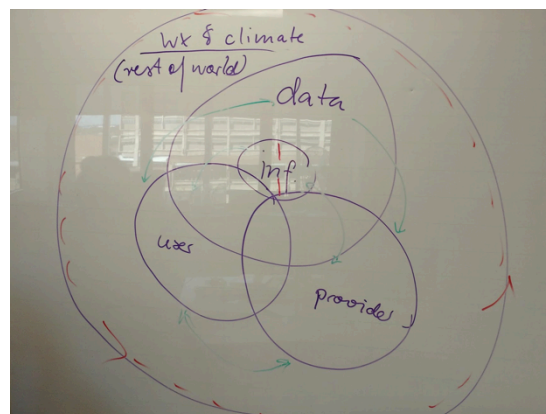 wx & climate
(rest of world)
data
inf.
user
provider